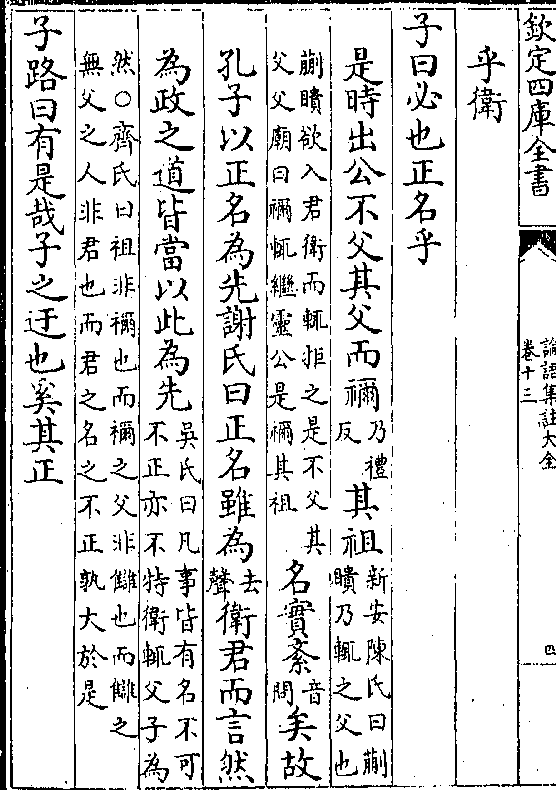 欽定四庫全書
論語集註大全
卷十三
四
乎衛
子曰必也正名乎
是時出公不父其父而禰乃禮反其祖新安陳氏曰蒯聵乃輒之父也
蒯聵欲入君衛而輒拒之是不父其父父廟曰禰輒繼靈公是禰其祖名實紊音問矣故
孔子以正名為先謝氏曰正名雖為去聲衛君而言然
為政之道皆當以此為先吳氏曰凡事皆有名不可不正亦不特衛輒父子為
然○齊氏曰祖非禰也而禰之父非讎也而讎之無父之人非君也而君之名之不正孰大於是
子路曰有是哉子之迂也奚其正